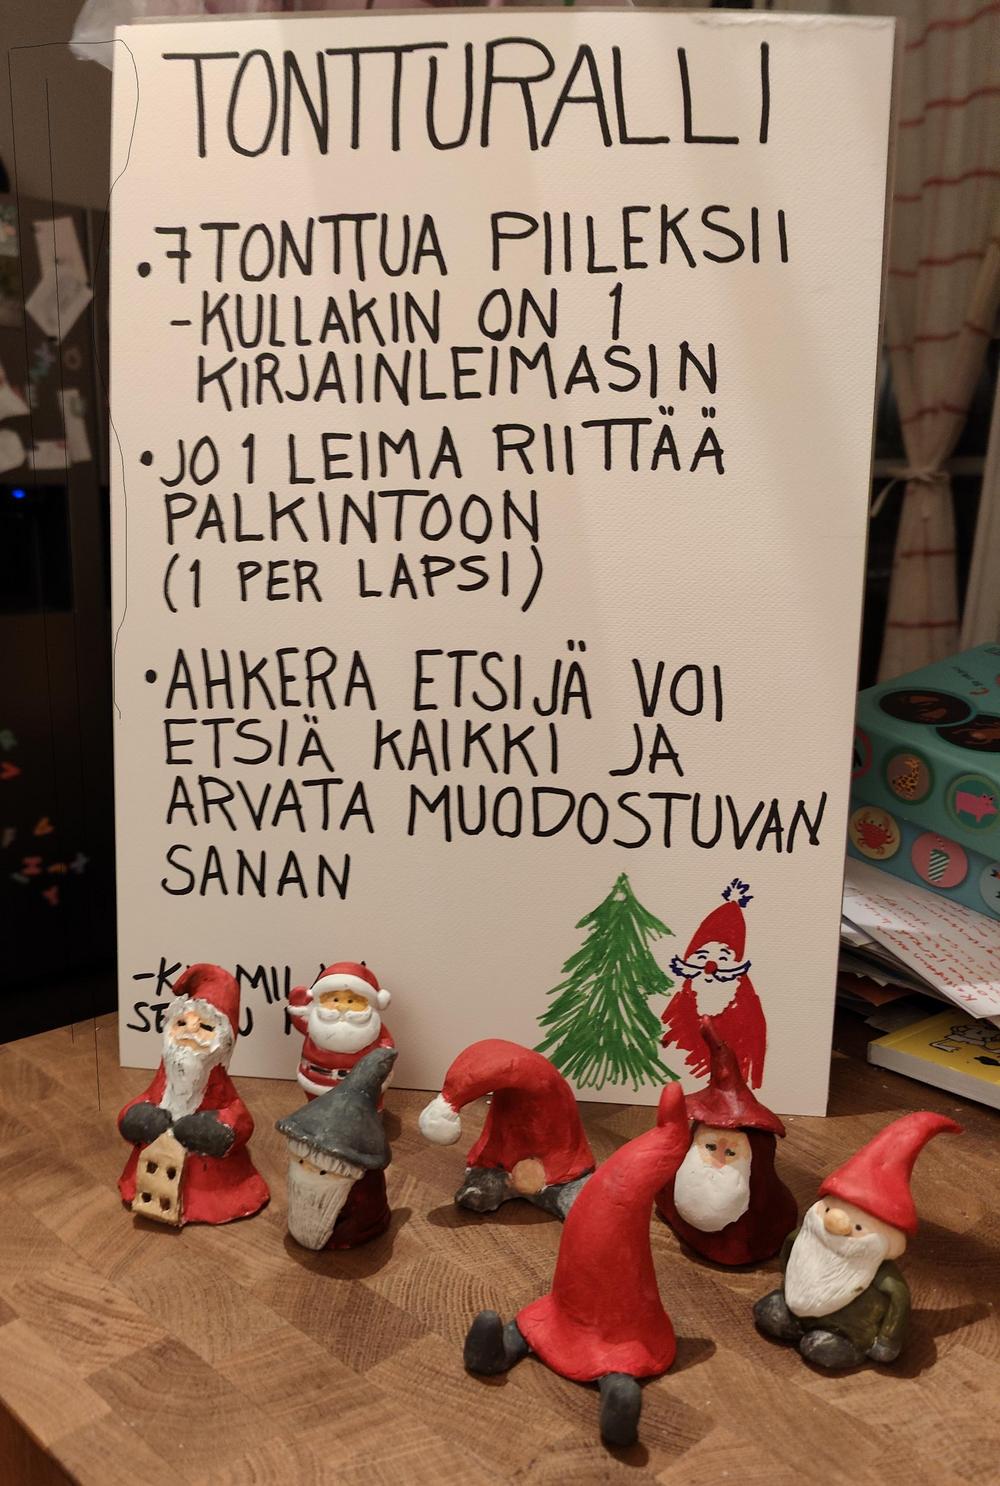 TONTTURALLI
• 7 TONTTUA PIILEKSII
-KULLAKIN ON 1
KIRJAINLEIMASIN
• JO 1 LEIMA RIITTÄÄ
PALKINTOON
(1 PER LAPSI)
• AHKERA ETSIJÄ VOI
ETSIÄ KAIKKI JA
ARVATA MUODOSTUVAN
SANAN